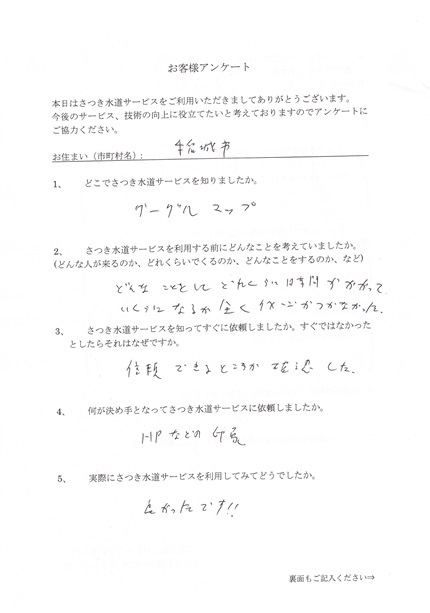 お客様アンケート
本日はさつき水道サービスをご利用いただきましてありがとうございます。
今後のサービス、技術の向上に役立てたいと考えておりますのでアンケートに
ご協力ください。
お住まい（市町村名）： 稲城市
1、 どこでさつき水道サービスを知りましたか。
グーグル マップ
2、 さつき水道サービスを利用する前にどんなことを考えていましたか。
(どんな人が来るのか、どれくらいでくるのか、どんなことをするのか、など)
どんなことをして どれくらい時間がかかって
いくらになるか全く 見当がつかなかった。
3、 さつき水道サービスを知ってすぐに依頼しましたか。すぐではなかった
としたらそれはなぜですか。
信頼できるところか確認した。
4、 何が決め手となってさつき水道サービスに依頼しましたか。
HPなどの印象
5、 実際にさつき水道サービスを利用してみてどうでしたか。
良かったです!!
裏面もご記入ください⇒